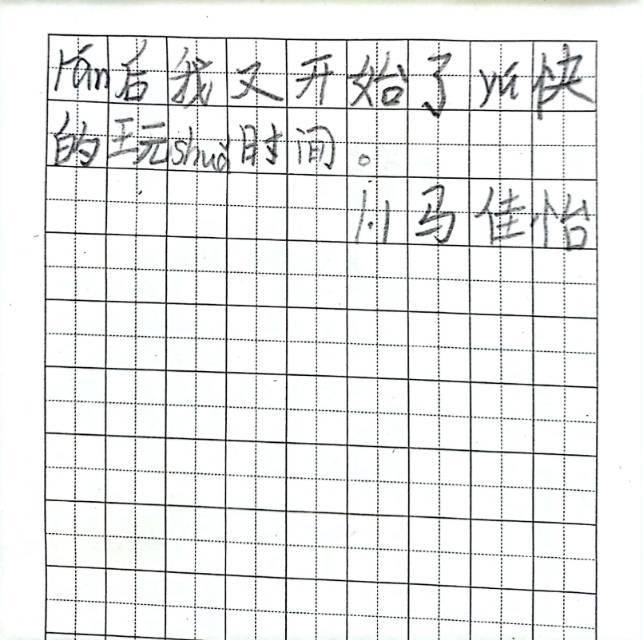 rán后我又开始了yú快
的玩shuǎ时间。
1.1马佳怡